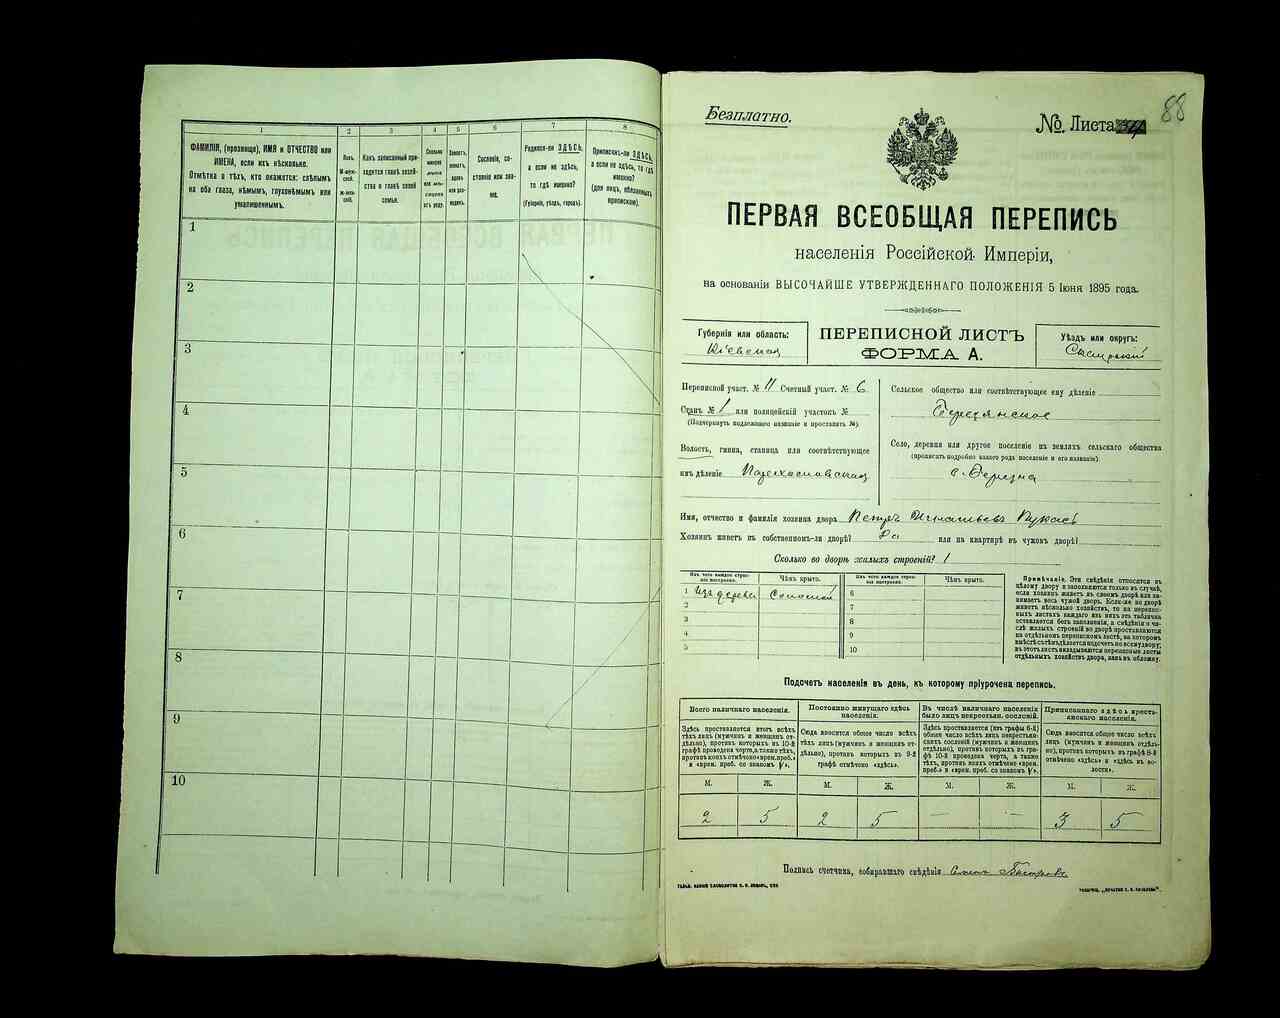 1 2 3 4 5 6 7 8
ФАМИЛІЯ, (прозвище), ИМЯ и ОТЧЕСТВО или
ИМЕНА, если ихъ нѣсколько.
Отмѣтка о тѣхъ, кто окажется: слѣпымъ
на оба глаза, нѣмымъ, глухонѣмымъ или
умалишеннымъ.
Полъ.
М-муж-
ской.
Ж-жен-
скій.
Какъ записанный при-
ходится главѣ хозяй-
ства и главѣ своей
семьи.
Сколько
минуло
лѣтъ
или мѣ-
сяцевъ
отъ роду.
Холостъ,
женатъ,
вдовъ
или раз-
веденъ.
Сословіе, со-
стояніе или зва-
ніе.
Родился-ли ЗДѢСЬ,
а если не здѣсь,
то гдѣ именно?
(Губернія, уѣздъ, городъ).
Приписанъ-ли ЗДѢСЬ,
а если не здѣсь, то гдѣ
именно?
(для лицъ, обязанныхъ
припискою).
1
2
3
4
5
6
7
8
9
10
88
Безплатно.
№ Листа
ПЕРВАЯ ВСЕОБЩАЯ ПЕРЕПИСЬ
населенія Россійской Имперіи,
на основаніи ВЫСОЧАЙШЕ УТВЕРЖДЕННАГО ПОЛОЖЕНІЯ 5 Іюня 1895 года.
Губернія или область:
Кіевская
ПЕРЕПИСНОЙ ЛИСТЪ
ФОРМА А.
Уѣздъ или округъ:
Переписной участ. № 11 Счетный участ. № 6
Станъ № 1 или полицейскій участокъ №
(Подчеркнуть подлежащее названіе и проставить №).
Волость, гмина, станица или соотвѣтствующее
имъ дѣленіе
Сельское общество или соотвѣтствующее ему дѣленіе
Село, деревня или другое поселеніе на земляхъ сельскаго общества
(прописать подробно какого рода поселеніе и его названіе).
Имя, отчество и фамилія хозяина двора Петръ Игнатьевъ
Хозяинъ живетъ въ собственномъ-ли дворѣ? Да или на квартирѣ въ чужомъ дворѣ?
Сколько во дворѣ жилыхъ строеній? 1
Изъ чего каждое строе-
ніе построено. Чѣмъ крыто. Изъ чего каждое строе-
ніе построено. Чѣмъ крыто.
1 Изъ дерева Соломой 6
2 7
3 8
4 9
5 10
Примѣчаніе. Эти свѣдѣнія относятся къ
цѣлому двору и заполняются только въ случаѣ,
если хозяинъ живетъ въ своемъ дворѣ или за-
нимаетъ весь чужой дворъ. Если-же во дворѣ
живетъ нѣсколько хозяйствъ, то на перепис-
ныхъ листахъ каждаго изъ нихъ эта табличка
оставляется безъ заполненія, а свѣдѣнія о чи-
слѣ жилыхъ строеній во дворѣ проставляются
на отдѣльномъ переписномъ листѣ, на которомъ
вмѣстѣ съ тѣмъ дѣлается подсчетъ по всему двору;
въ этотъ листъ вкладываются переписные листы
отдѣльныхъ хозяйствъ двора, какъ въ обложку.
Подсчетъ населенія въ день, къ которому пріурочена перепись.
Всего наличнаго населенія.
Здѣсь проставляется итогъ всѣхъ
тѣхъ лицъ (мужчинъ и женщинъ от-
дѣльно), противъ которыхъ въ 10-й
графѣ проведена черта, а также тѣхъ,
противъ коихъ отмѣчено «врем. преб.»
и «врем. преб. со знакомъ V».
Постоянно живущаго здѣсь
населенія.
Сюда вносится общее число всѣхъ
тѣхъ лицъ (мужчинъ и женщинъ от-
дѣльно), противъ которыхъ въ 9-й
графѣ отмѣчено «здѣсь».
Въ числѣ наличнаго населенія
было лицъ некрестьян. сословій.
Здѣсь проставляется (изъ графы 6-й)
общее число всѣхъ лицъ некрестьян-
скихъ сословій (мужчинъ и женщинъ
отдѣльно), противъ которыхъ въ гра-
фѣ 10-й проведена черта, а также
тѣхъ, противъ коихъ отмѣчено «врем.
преб.» и «врем. преб. со знакомъ V».
Приписаннаго здѣсь кресть-
янскаго населенія.
Сюда вносится общее число всѣхъ
лицъ (мужчинъ и женщинъ отдѣль-
но), противъ которыхъ въ графѣ 8-й
отмѣчено «здѣсь» и «здѣсь въ во-
лости».
М. Ж. М. Ж. М. Ж. М. Ж.
2 5 2 5 — — 3 5
Подпись счетчика, собиравшаго свѣдѣнія